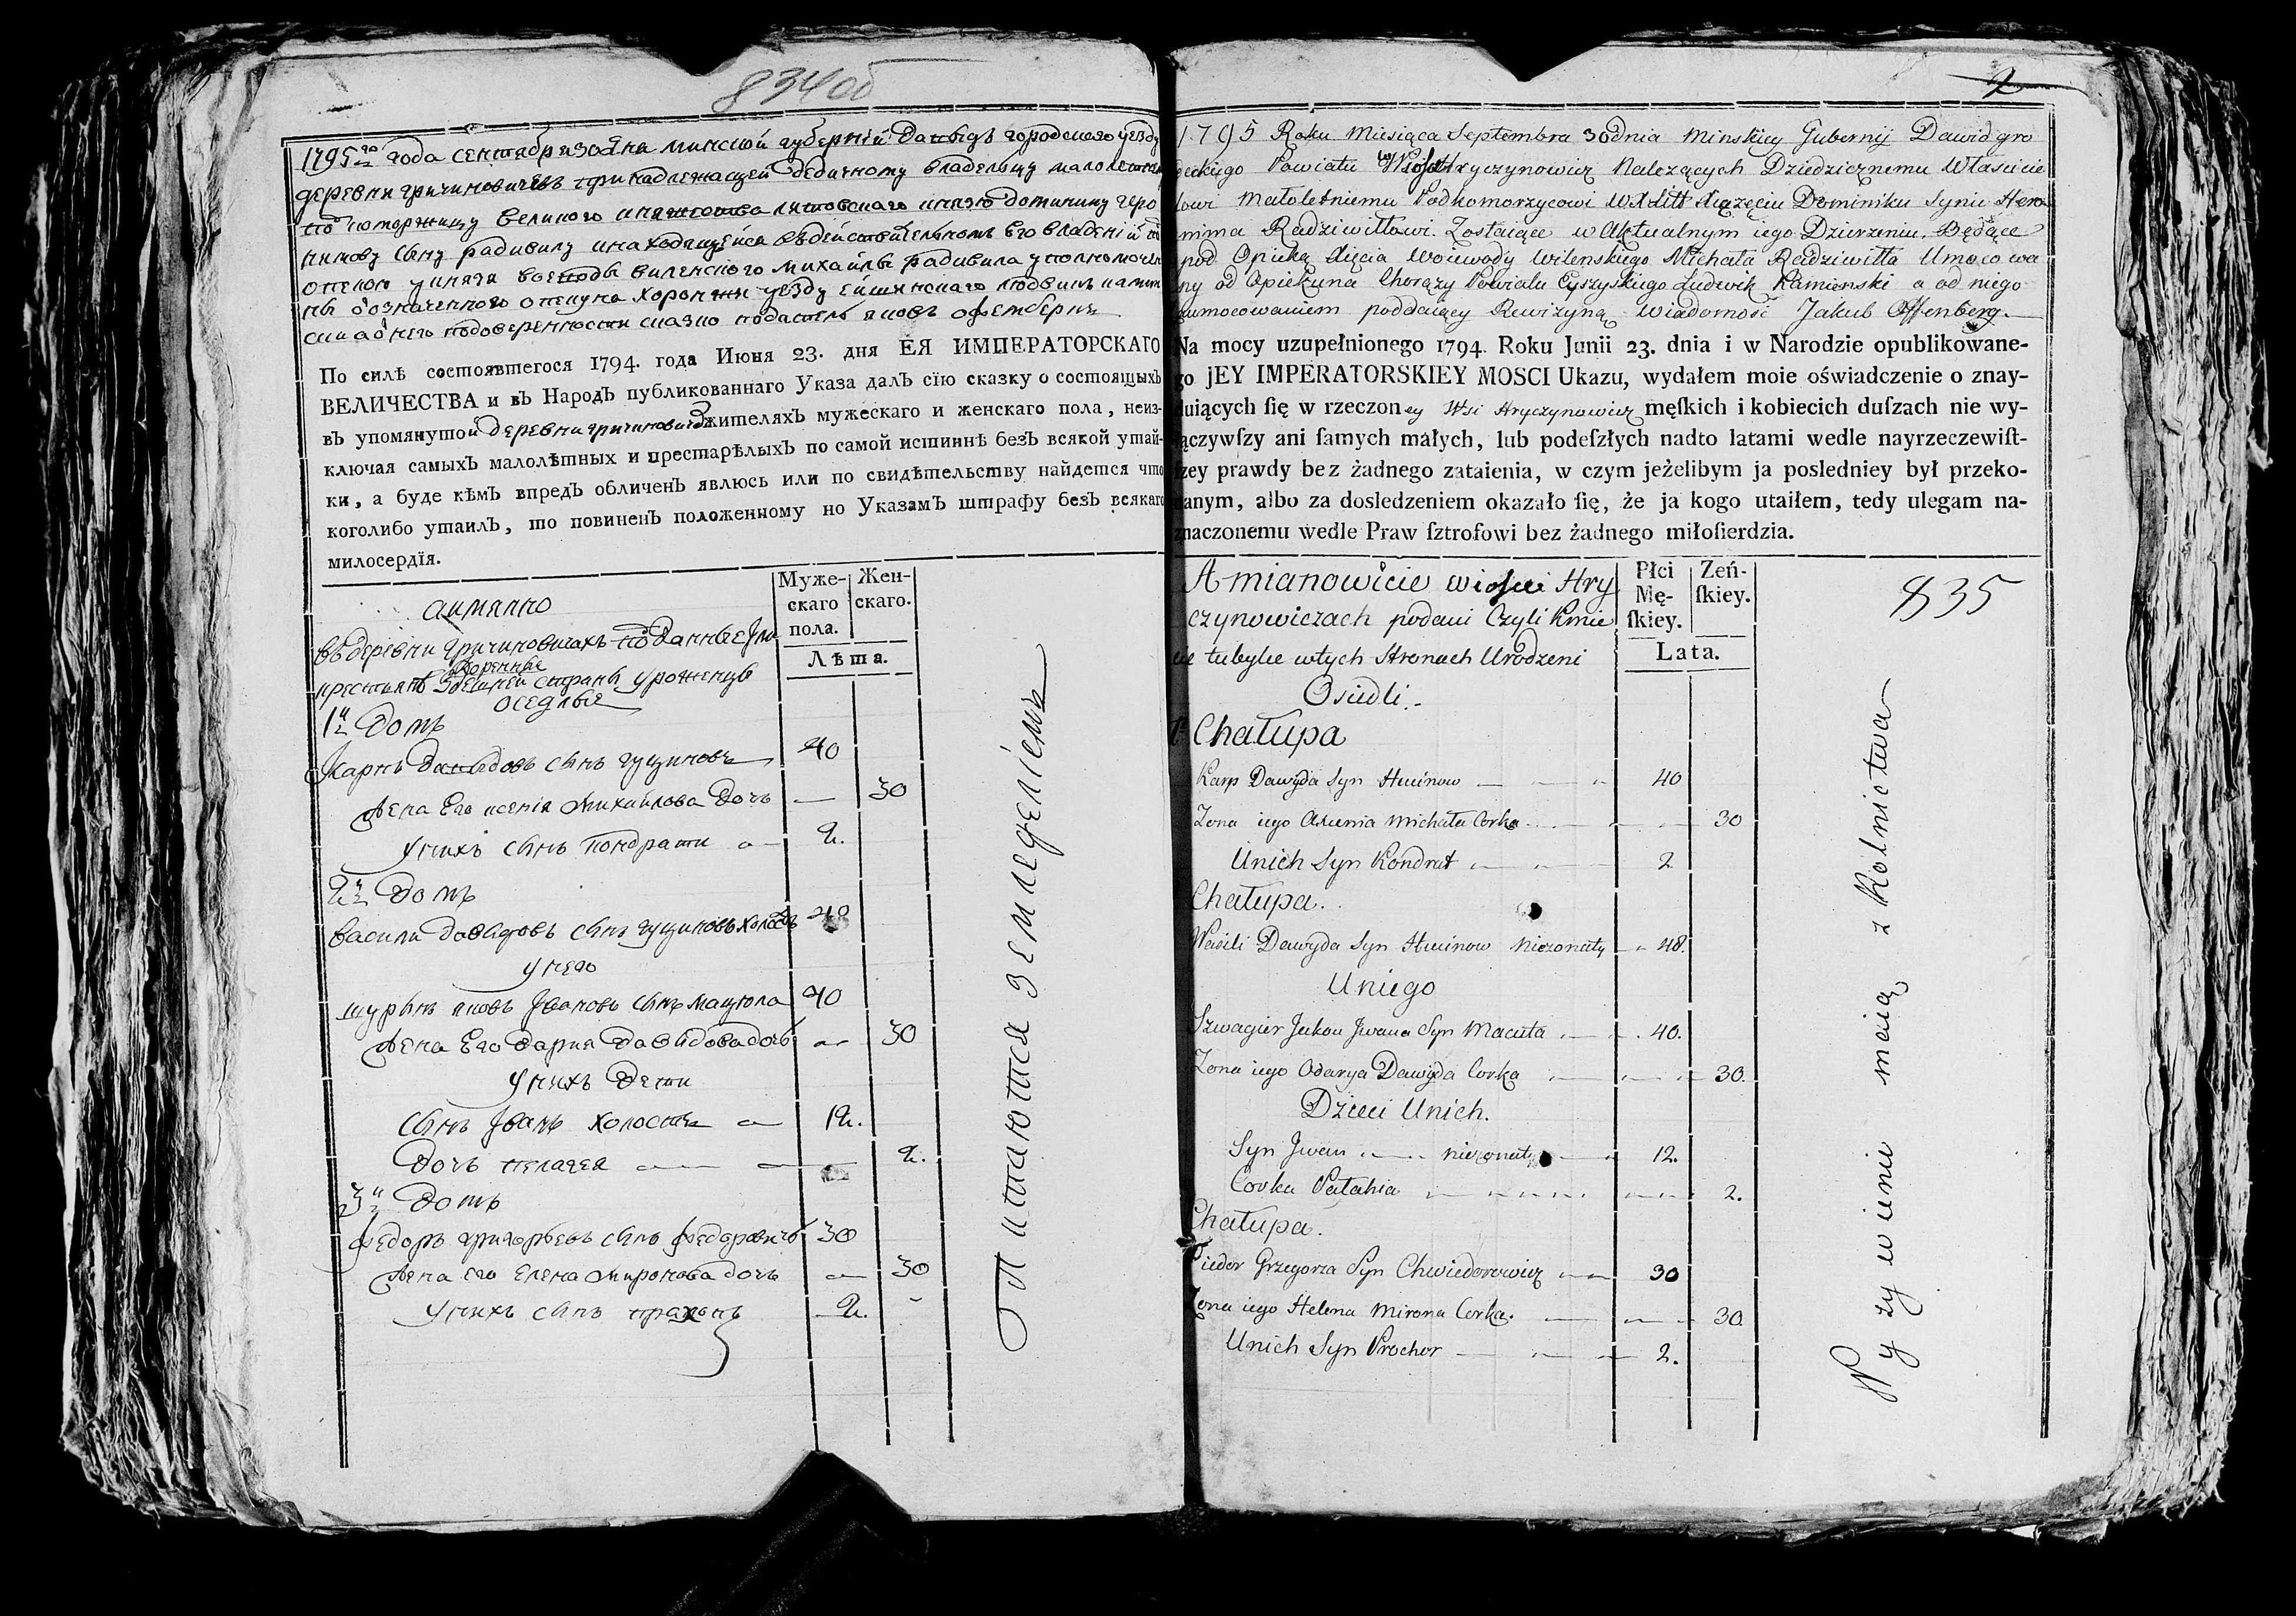 834об
1795го года сентября 30 дня минской губернiи давыдъ городского уезду
деревни гричиновичевъ принадлежащей дедичному владельцу малолетному
по коморжицу великого княжества литовскаго князю доминику геро
нимову сыну радивилу и находящейся въ действительномъ его владенiи под
опекою у князя воеводы виленского михайлы радивила уполномочен
ны означенного опекуна хоружи уезду ейшинскаго людвикъ камин
ски а от него по доверенности сказко податель яковъ офенбергъ
По силѣ состоявтегося 1794. года Июня 23. дня ЕЯ ИМПЕРАТОРСКАГО
ВЕЛИЧЕСТВА и вЪ НародЪ публикованнаго Указа далЪ сїю сказку о состоящыхЪ
вЪ упомянутой деревни гричиновичахъ жителяхЪ мужескаго и женскаго пола, неиз-
ключая самыхЪ малолѣтныхЪ и престарѣлыхЪ по самой истиннѣ безЪ всякой утай-
ки, а буде кѣмЪ впредЪ обличенЪ явлюсь или по свидѣтельству найдется что
коголибо утаилЪ, то повиненЪ положенному по УказамЪ штрафу безЪ всякаго
милосердїя.
Муже-
скаго
пола.
Жен-
скаго.
Лѣта.
а имянно
въ деревни гричиновичахъ подданные или
крестьяне коренные здешней страны уроженцы
оседлые
1й Домъ
Карпъ давыдовъ сынъ гущиновъ 40
Жена Его ксенiя михайлова дочь — 30
у нихъ сынъ кондрати 2.
2й Домъ
василь давыдовъ сынъ гущиновъ холостъ 40
у него
шуринъ яковъ Iвановъ сынъ мацюла 40
Жена Его дарiя давыдова дочь 30
у нихъ дети
сынъ Iванъ холостъ 12.
дочь пелагея 2.
3й Домъ
федоръ григорьевъ сынъ федоровичъ 30
Жена его Елена миронова дочь 30
у нихъ сынъ прахоръ 2.
Питаются земледелiемъ
2
1795 Roku Miesiąca Septembra 30 dnia Minskiey Gubernij Dawidgro
deckiego Powiatu Wiosce Hryczynowicz Nalezących Dziedzicznemu Własicie
lowi Małoletniemu Podkomorzycowi WXLitt Xiązęciu Dominiku Synu Hero
nima Radziwiłłowi. Zostaiące w Aktualnym iego Dzierzeniu, Będące
pod Opieką Xięcia Woiewody Wilenskiego Michała Radziwiłła Umocowa
ny od Opiekuna Chorązy Powiatu Eyszyskiego Ludwik Kamienski a od niego
umocowaniem poddaiący Rewizyną wiadomosc Jakub Offenberg.
Na mocy uzupełnionego 1794. Roku Junii 23. dnia i w Narodzie opublikowane-
go JEY IMPERATORSKIEY MOSCI Ukazu, wydałem moie oświadczenie o znay-
duiących ſię w rzeczoney Wsi Hryczynowicz męſkich i kobiecich duſzach nie wy-
łączywſzy ani ſamych małych, lub podeſzłych nadto latami wedle nayrzeczewiſt-
ſzey prawdy bez żadnego zataienia, w czym jeżelibym ja posledniey był przeko-
nanym, albo za dosledzeniem okazało ſię, że ja kogo utaiłem, tedy ulegam na-
znaczonemu wedle Praw ſztrofowi bez żadnego miłoſierdzia.
Płci
Mę-
ſkiey.
Zeń-
ſkiey.
Lata.
835
A mianowicie wiosce Hry
czynowiczach podani Czyli Kmie
cie tubylce w tych Stronach Urodzeni
Osiedli.
1 Chałupa
Karp Dawyda Syn Hucinow 40
Zona iego Axienia Michała Corka 30
Unich Syn Kondrat 2
Chałupa.
Wasili Dawyda Syn Hucinow niezonaty 48.
Uniego
Szwagier Jakou Jwana Syn Maciuta 40.
Zona iego Odarya Dawyda Corka 30.
Dzieci Unich.
Syn Jwan niezonaty 12.
Corka Pałahia 2.
Chałupa.
Fiedor Grzegorza Syn Chwiedorowicz 30
Zona iego Helena Mirona Corka. 30
Unich Syn Prochor 2.
Pyzywienie maią z Rolnictwa